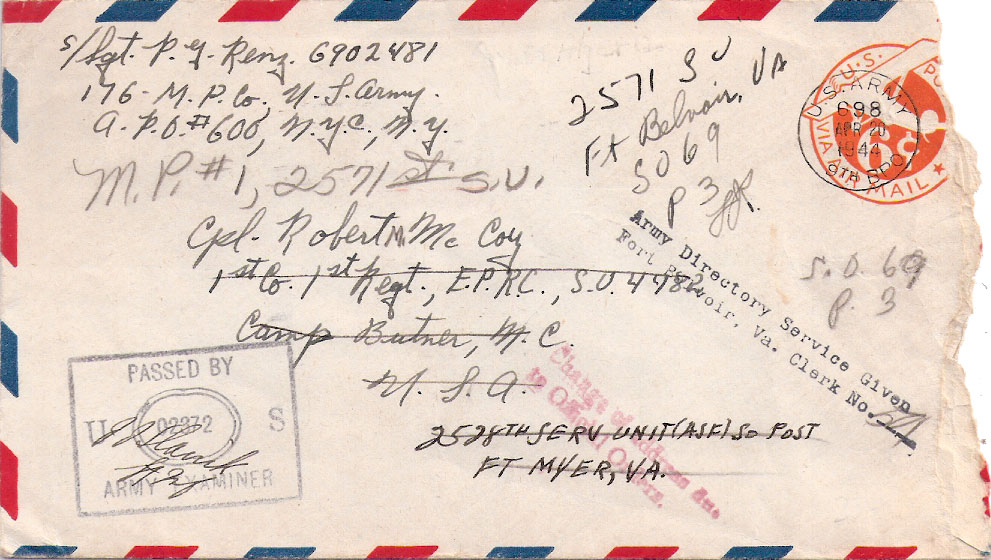 S/Sgt. P. J. Renz. 6902481
176- M.P. Co. U.S. Army.
A.P.O. #600, N.Y.C., N.Y.
M.P. #1, 2571 st S.U.
2571 SU
Ft Belvoir, VA
SO 69
P 3
U.S. PO
VIA AIR MAIL
6¢
U.S. ARMY
698
APR 20
1944
9TH BPO
Cpl. Robert M. McCoy
1st Co. 1st Regt., E.P.R.C., S.O. 4482
Camp Butner, N.C.
U.S.A.
2528TH SERV UNIT (ASF) SO POST
FT MYER, VA.
Army Directory Service Given
Fort Belvoir, Va. Clerk No.
S.O. 69
P. 3
Change of Address due
to Official Orders.
PASSED BY
U 02872 S
ARMY EXAMINER